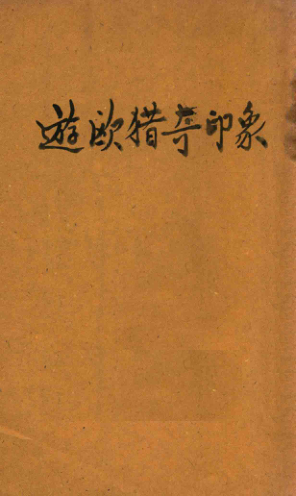 遊欧猎奇印象